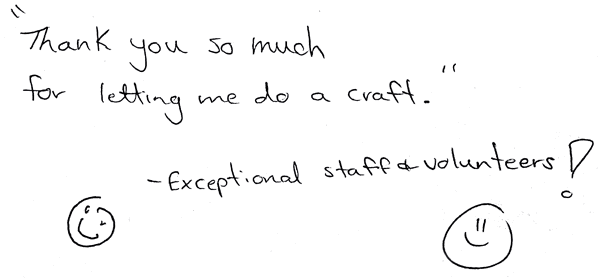 "Thank you so much
for letting me do a craft."
-Exceptional staff & volunteers!